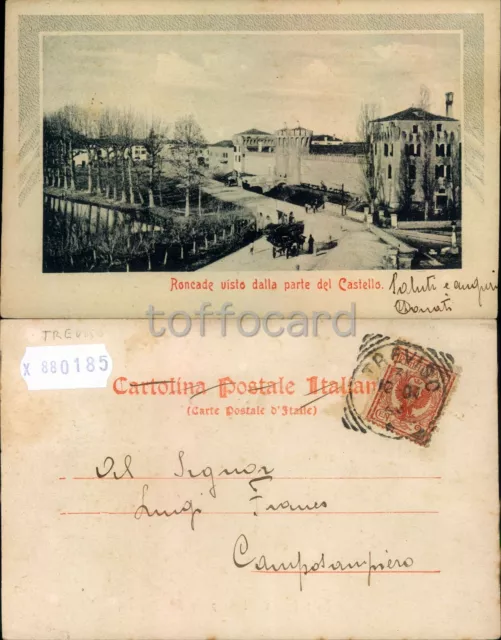 Roncade visto dalla parte del Castello.
Saluti e auguri
Donati
toffocard
TREVISO
X 880185
Cartolina Postale Italiana
(Carte Postale d'Italie)
TREVISO
Al Signor
Luigi Franco
Camposampiero